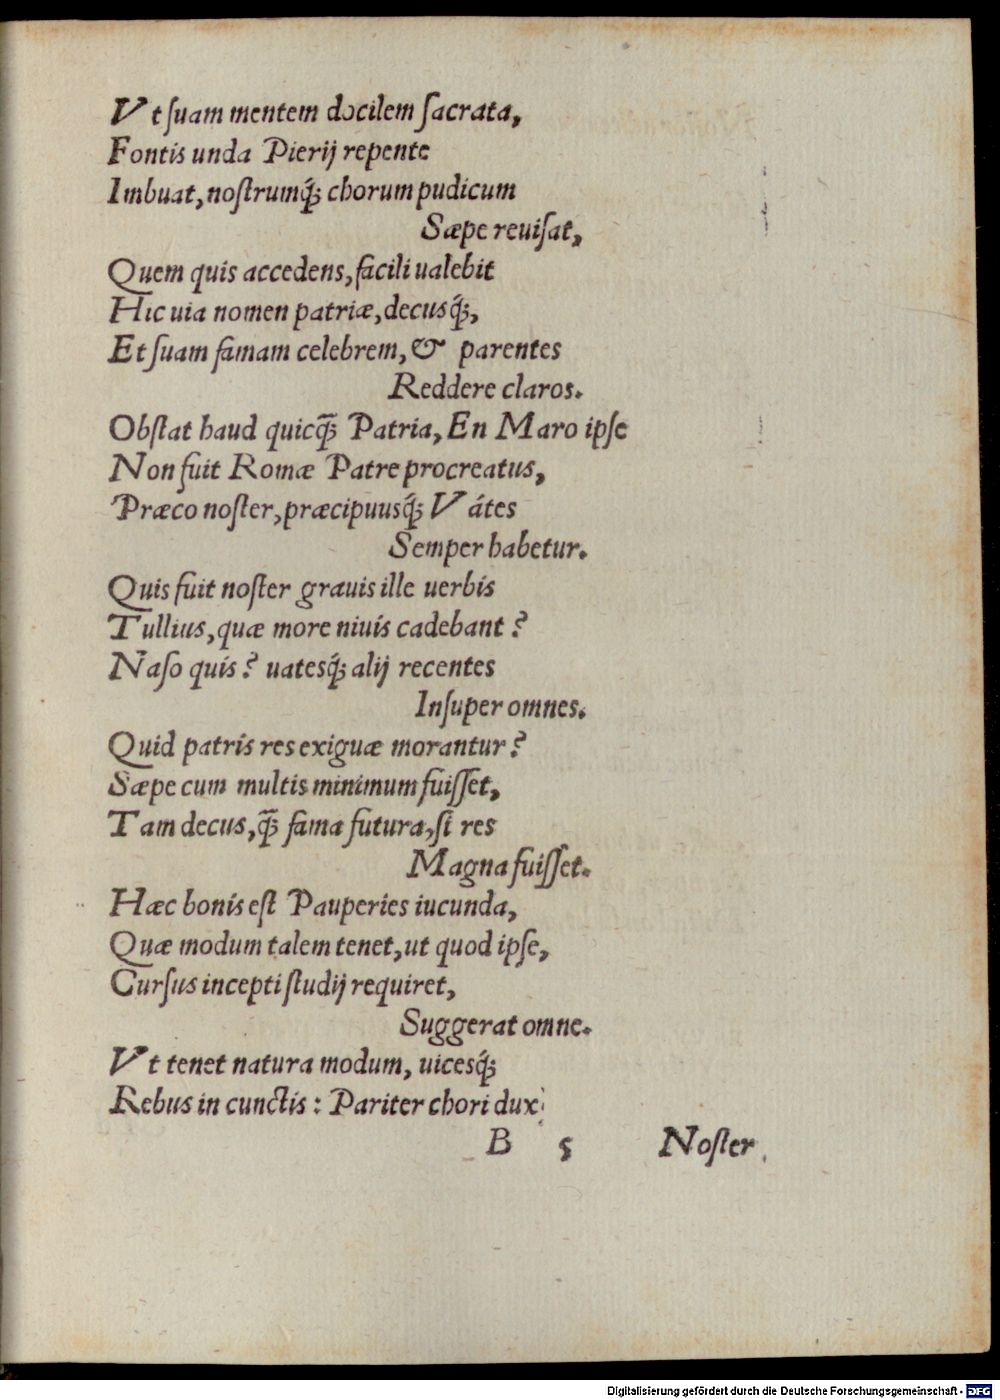 Vt ſuam mentem docilem ſacrata,
Fontis unda Pierij repente
Imbuat, noſtrumq́; chorum pudicum
Sæpe reuiſat,
Quem quis accedens, facili ualebit
Hic uia nomen patriæ, decusq́;,
Et ſuam famam celebrem, & parentes
Reddere claros.
Obſtat haud quicq̃; Patria, En Maro ipſe
Non fuit Romæ Patre procreatus,
Præco noſter, præcipuusq́; Vátes
Semper habetur.
Quis fuit noſter grauis ille uerbis
Tullius, quæ more niuis cadebant?
Naſo quis? uatesq́; alij recentes
Inſuper omnes.
Quid patris res exiguæ morantur?
Sæpe cum multis minimum fuiſſet,
Tam decus, q̃; fama futura, ſi res
Magna fuiſſet.
Hæc bonis eſt Pauperies iucunda,
Quæ modum talem tenet, ut quod ipſe,
Curſus incepti ſtudij requiret,
Suggerat omne.
Vt tenet natura modum, uicesq́;
Rebus in cunctis: Pariter chori dux
B 5 Noſter
Digitalisierung gefördert durch die Deutsche Forschungsgemeinschaft - DFG